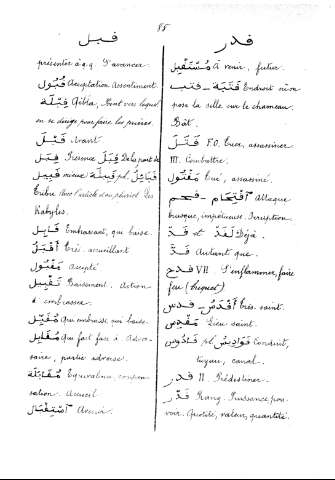 85
قبل
présenter à q.q. S'avancer.
قُبُول Acceptation Assentiment.
قِبْلَة Qibra, Point vers lequel
on se dirige pour faire les prières.
قَبْلَ Avant
قِبَل Présence قِبَلَ De la part de
قَبِيل même قَبِيلَة pl. قَبَائِل
Tribu Avec l'article et au pluriel Les
Kabyles.
قَابِل Embrassant, qui baise.
أَقْبَل Très accueillant
مَقْبُول Accepté
تَقْبِيل Baisement. Action
d'embrasser.
مُقَبِّل Qui embrasse, qui baise.
مُقَابِل Qui fait face à. Adver-
saire, partie adverse.
مُقَابَلَة Equivalence, compen-
sation. Accueil
اسْتِقْبَال Avenir.
قدر
مُسْتَقْبِل À venir, futur.
قتب - قَتَبَة Endroit où on
pose la selle sur le chameau.
Bât.
قَتَلَ F.O. Tuer, assassiner
III. Combattre.
مَقْتُول Tué, assassiné.
قحم - اقْتِحَام Attaque
brusque, impétueuse. Irruption
قد et لَقَدْ Déjà.
قَدّ Autant que.
قدح VII S'enflammer, faire
feu (briquet)
قدس - أَقْدَس Très saint.
مَقْدِس Lieu saint.
قَادُوس pl. قَوَادِيس Conduit,
tuyau, canal.
قدر II. Prédestiner.
قَدْر Rang. Puissance, pou-
voir. Quotité, valeur, quantité.